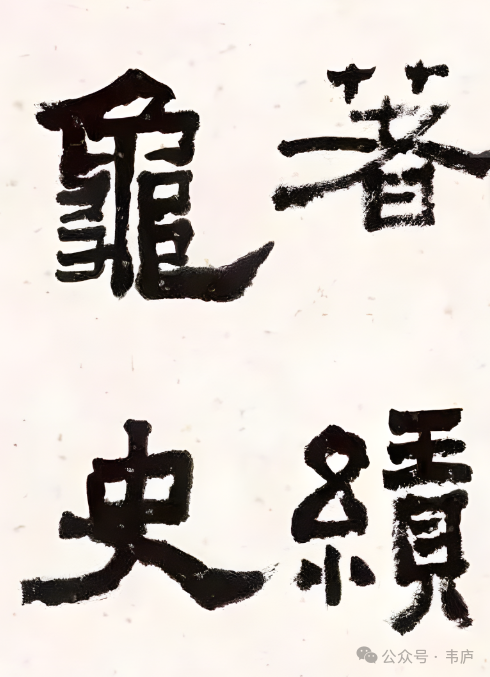 著績
龜史
公众号 · 韦庐